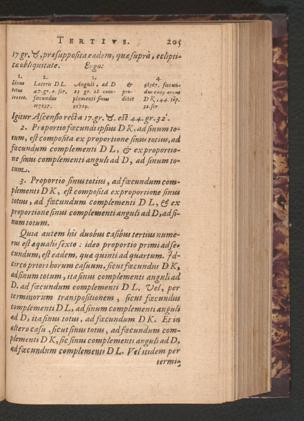 TERTIVS. 205
17 gr. ♉, præsupposita eadem, quæ suprà, eclipti-
cæ obliquitate. Ergo:
1. 2. 3. 4.
Sinus Lateris D L Anguli, ad D &
totus 47. gr. 2. scr.
fæcundus plementi sinu ducet D K. 44. sup.
Igitur Ascensio recta 17. gr. ♉, est 44. gr. 32'.
2. Proportio fæcundi ipsius D K, ad sinum to-
tum, est composita ex proportione sinus totius, ad
fæcundum complementi D L, & ex proportio-
ne sinus complementi anguli ad D, ad sinum to-
tum.
3. Proportio sinus totius, ad fæcundum com-
plementi D K, est composita ex proportione sinus
totius, ad fæcundum complementi D L, & ex
proportione sinus complementi anguli ad D, ad si-
num totum.
Quia autem his duobus casibus tertius nume-
rus est æqualis sexto: ideo proportio primi ad se-
cundum, est eadem, quæ quinti ad quartum. Id-
circo priori horum casuum, sicut fæcundus D K,
ad sinum totum, ita sinus complementi anguli ad
D, ad fæcundum complementi D L. Vel, per
terminorum transpositionem, sicut fæcundus
complementi D L, ad sinum complementi anguli
ad D, ita sinus totus, ad fæcundum D K. Et in
altero casu, sicut sinus totus, ad fæcundum com-
plementi D K, sic sinus complementi anguli ad D,
ad fæcundum complementi D L. Vel itidem per
termi-